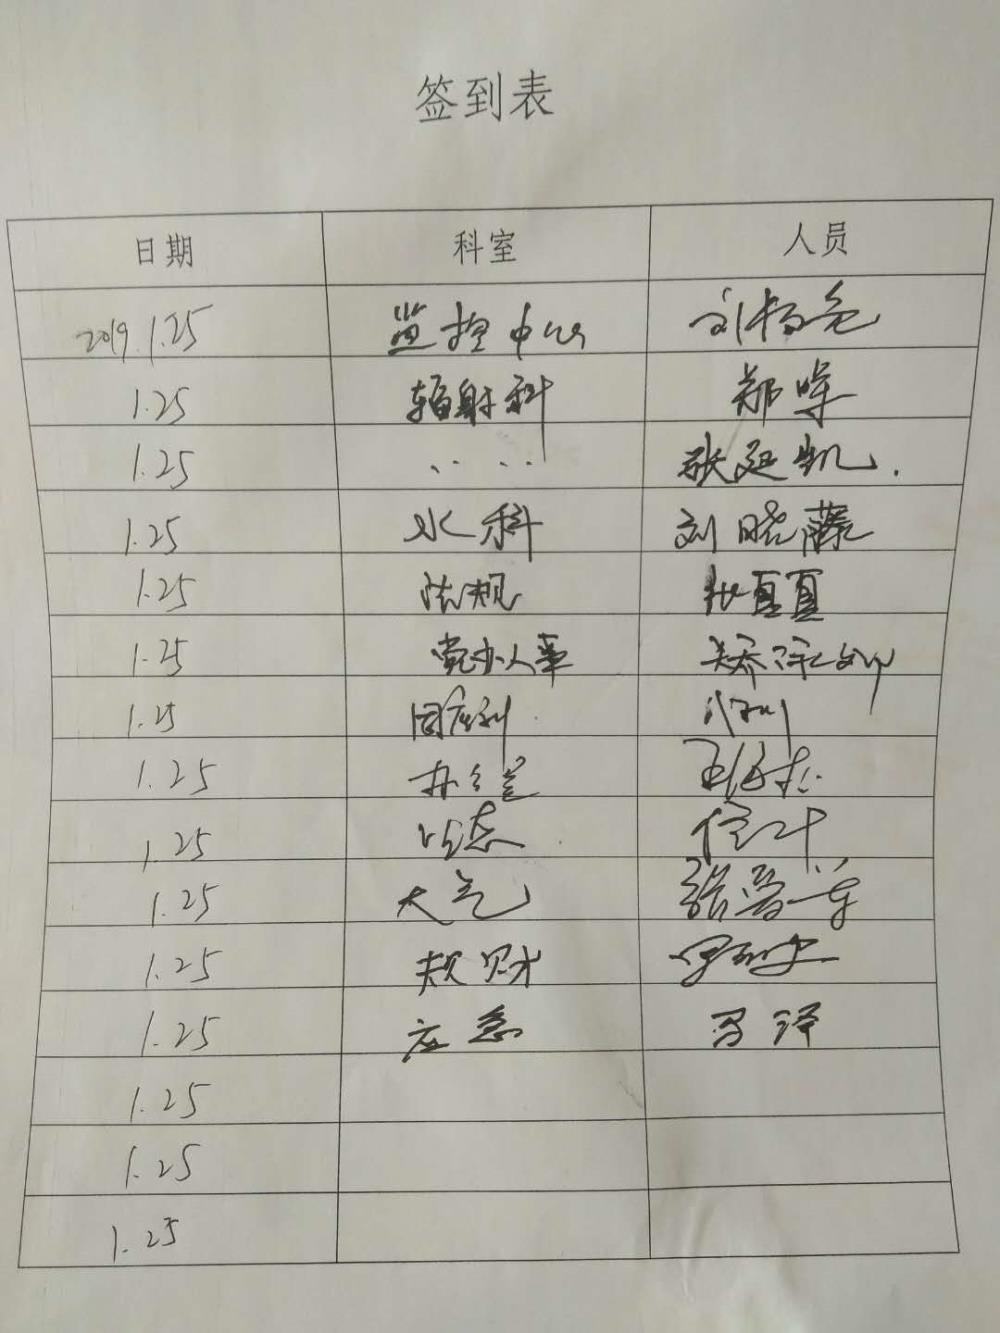 签到表
日期 科室 人员
2019.1.25 监控中心
1.25 辐射科 郑峰
1.25 ‥ ‥ 张延凯.
1.25 水科 刘晓藤
1.25 法规 张真真
1.25 党办人事
1.25 固废科
1.25 办公室
1.25 生态
1.25 大气
1.25 规财
1.25 应急 马泽
1.25
1.25
1.25